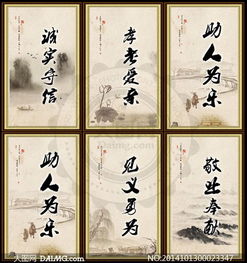 诚实守信
孝老爱亲
助人为乐
助人为乐
见义勇为
敬业奉献
大图网 DAIMG.com
NO:20141013000023347